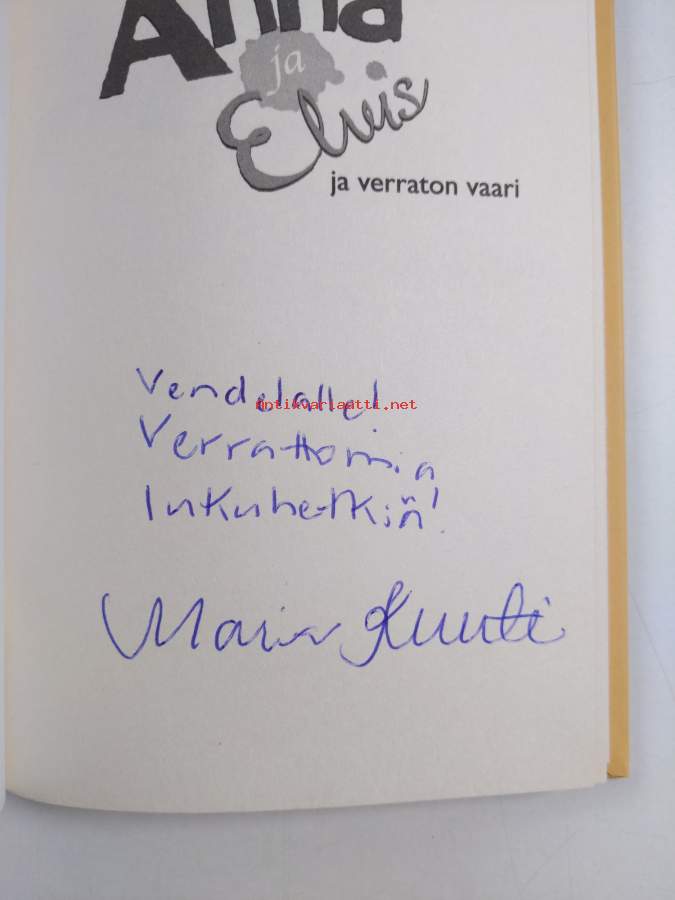 Anna
ja
Elvis
ja verraton vaari
Vendelalle!
antikvariaatti.net
Verrattomia
lukuhetkiä!
Maria Kuutti